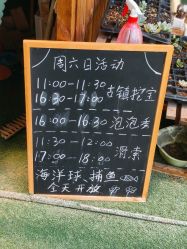 周六日活动
11:00-11:30
16:30-17:00 古镇挖宝
16:00-16:30 泡泡秀
11:30-12:00
17:00-18:00 滑索
海洋球、捕鱼
全天开放